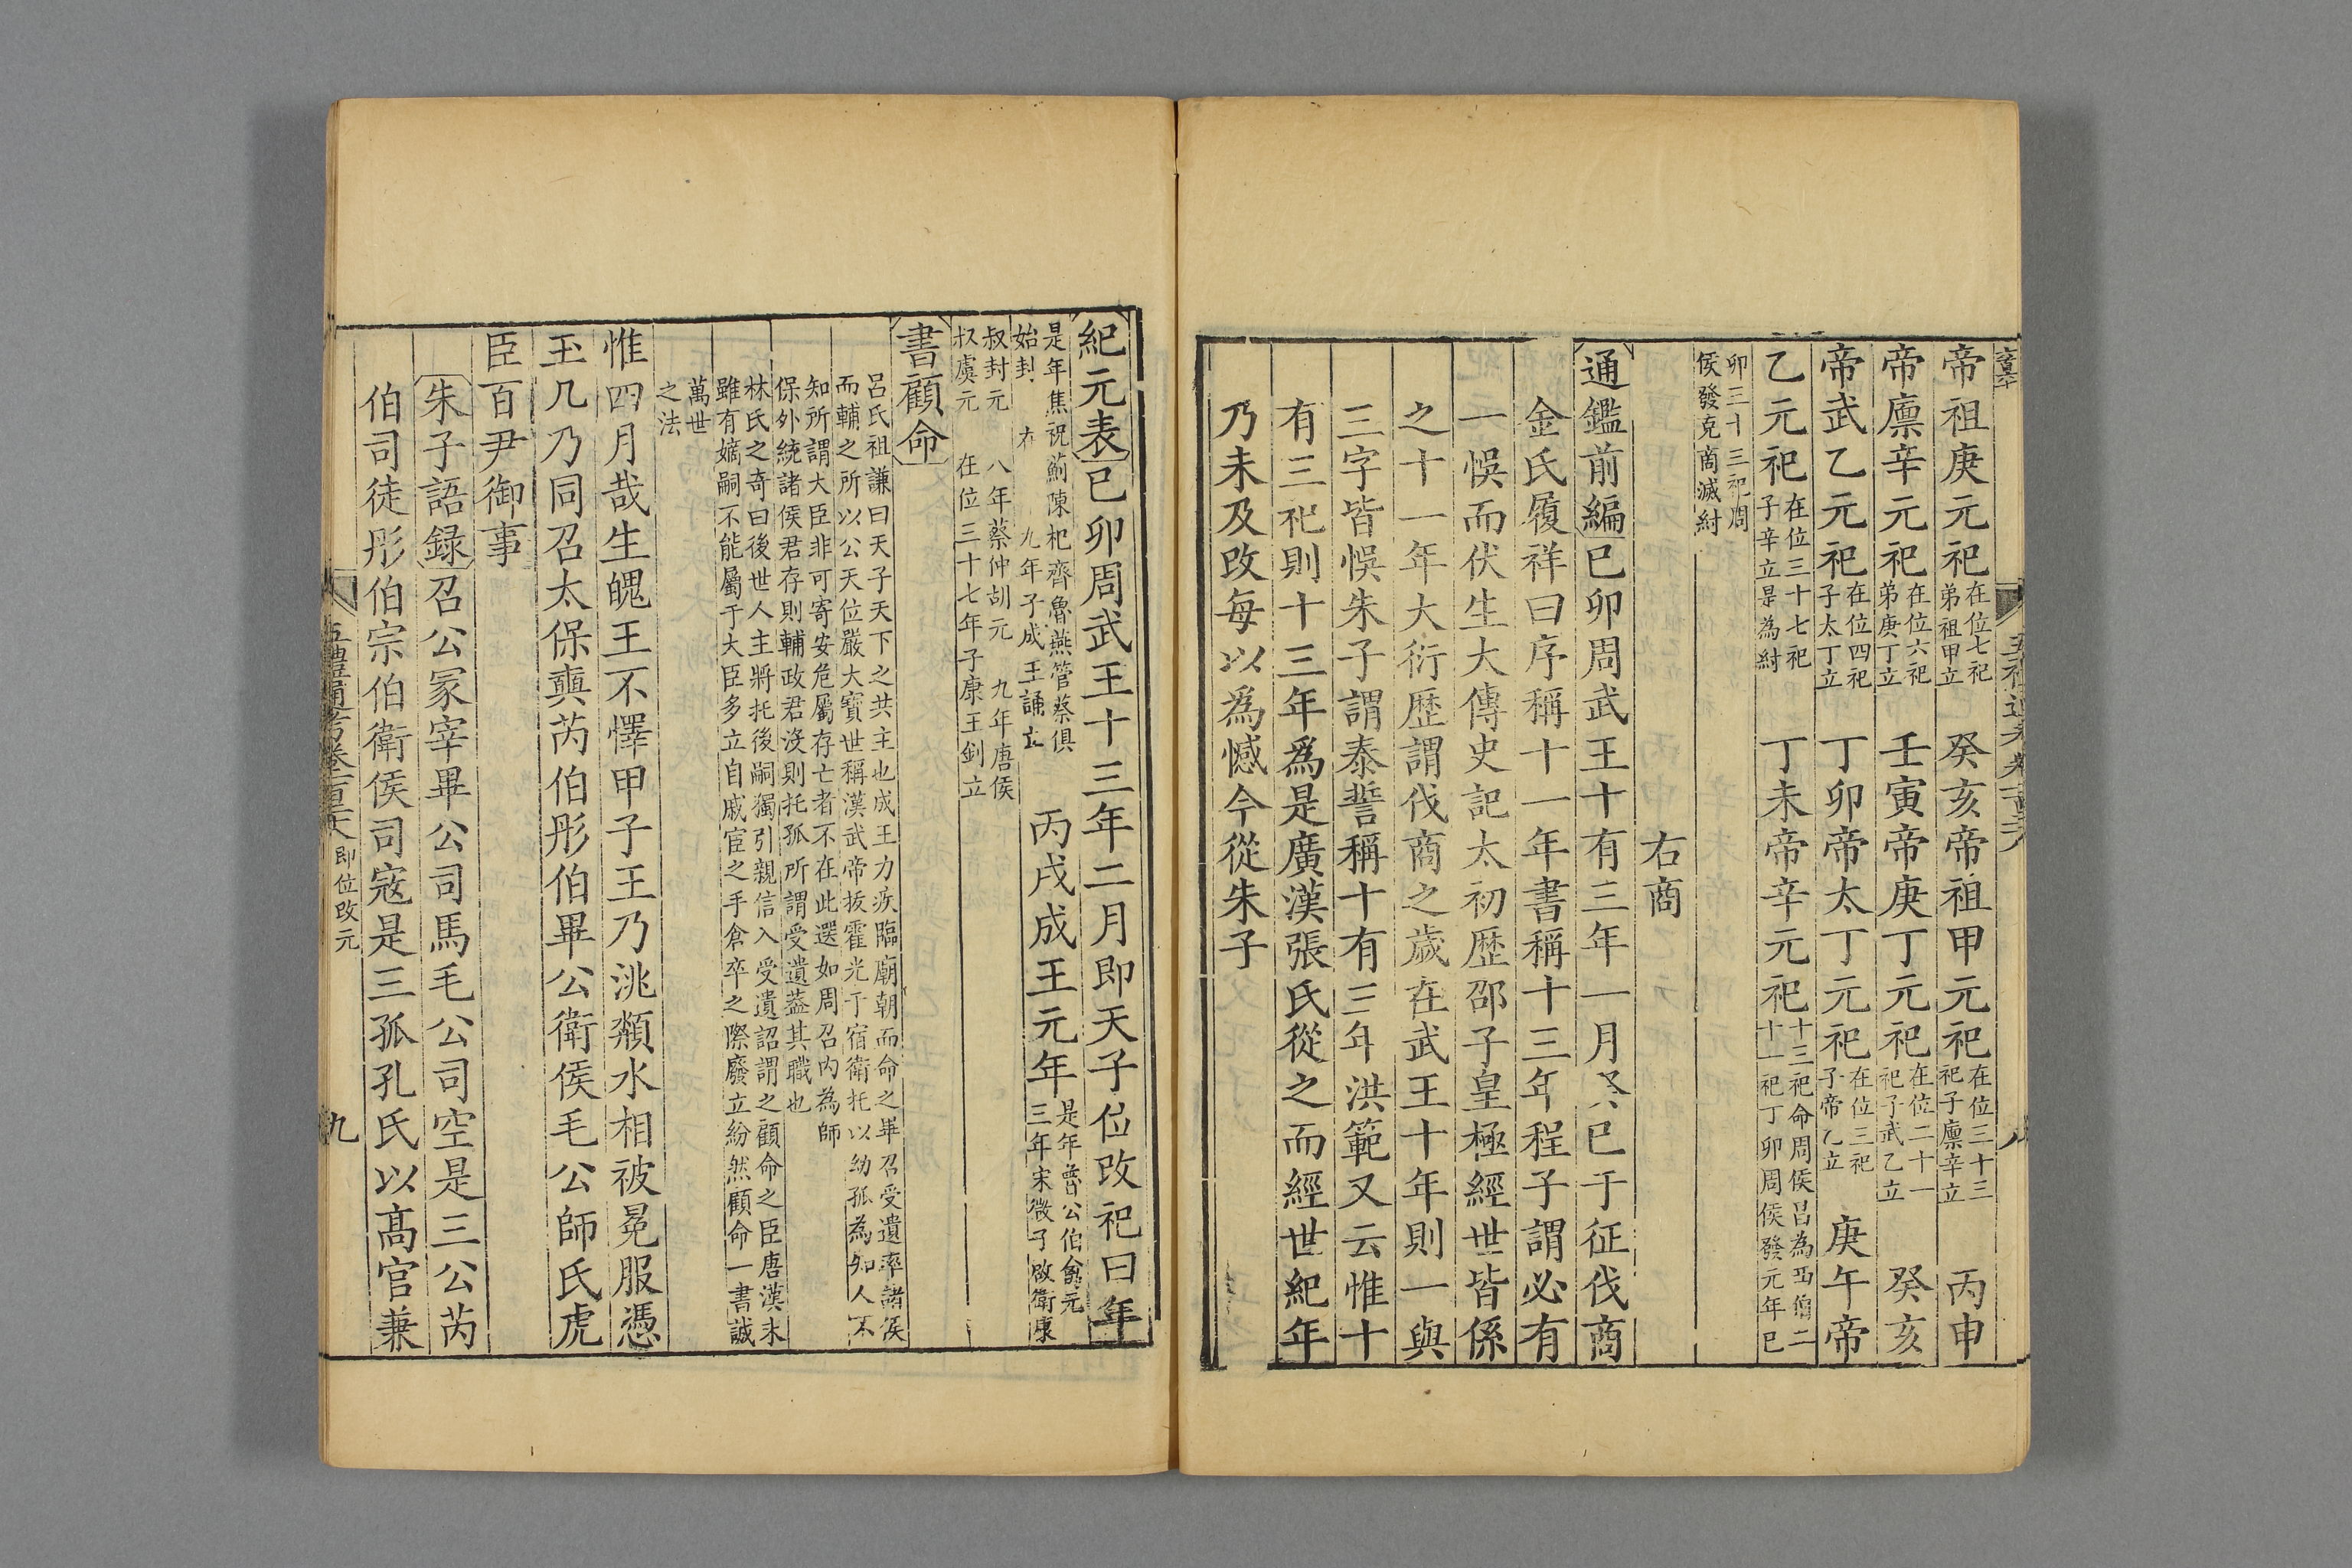 帝祖庚元祀在位七祀弟祖甲立 癸亥帝祖甲元祀在位三十三祀子廪辛立 丙申
帝廪辛元祀在位六祀弟庚丁立 壬寅帝庚丁元祀在位二十一祀子武乙立 癸亥
帝武乙元祀在位四祀子太丁立 丁卯帝太丁元祀在位三祀子帝乙立 庚午帝
乙元祀在位三十七祀子辛立是為紂 丁未帝辛元祀十三祀命周侯昌為西伯二十一祀丁卯周侯發元年已
卯三十三祀周侯發克商滅紂
右商
通鑑前編已卯周武王十有三年一月癸巳于征伐商
金氏履祥曰序稱十一年書稱十三年程子謂必有
一悞而伏生大傳史記太初歷邵子皇極經世皆係
之十一年大衍歷謂伐商之歲在武王十年則一與
三字皆悞朱子謂泰誓稱十有三年洪範又云惟十
有三祀則十三年為是廣漢張氏從之而經世紀年
乃未及改每以為憾今從朱子
紀元表已卯周武王十三年二月即天子位改祀曰年
是年焦祝薊陳杞齊魯燕管蔡俱始封 九年子成王誦立 丙戌成王元年是年魯公伯禽元三年宋微子啟衛康
叔封元 八年蔡仲胡元 九年唐侯叔虞元 在位三十七年子康王釗立
書顧命
呂氏祖謙曰天子天下之共主也成王力疾臨廟朝而命之畢召受遺率諸侯
而輔之所以公天位嚴大寶世稱漢武帝拔霍光于宿衛托以幼孤為知人不
知所謂大臣非可寄安危屬存亡者不在此選如周召内為師
保外統諸侯君存則輔政君沒則托孤所謂受遺葢其職也
林氏之奇曰後世人主將托後嗣獨引親信入受遺詔謂之顧命之臣唐漢末
雖有嫡嗣不能屬于大臣多立自戚宦之手倉卒之際廢立紛然顧命一書誠
萬世
之法
惟四月哉生魄王不懌甲子王乃洮頮水相被冕服憑
玉几乃同召太保奭芮伯彤伯畢公衛侯毛公師氏虎
臣百尹御事
朱子語録召公冢宰畢公司馬毛公司空是三公芮
伯司徒彤伯宗伯衛侯司寇是三孤孔氏以髙官兼
五禮通考卷一百二十八 即位改元 九